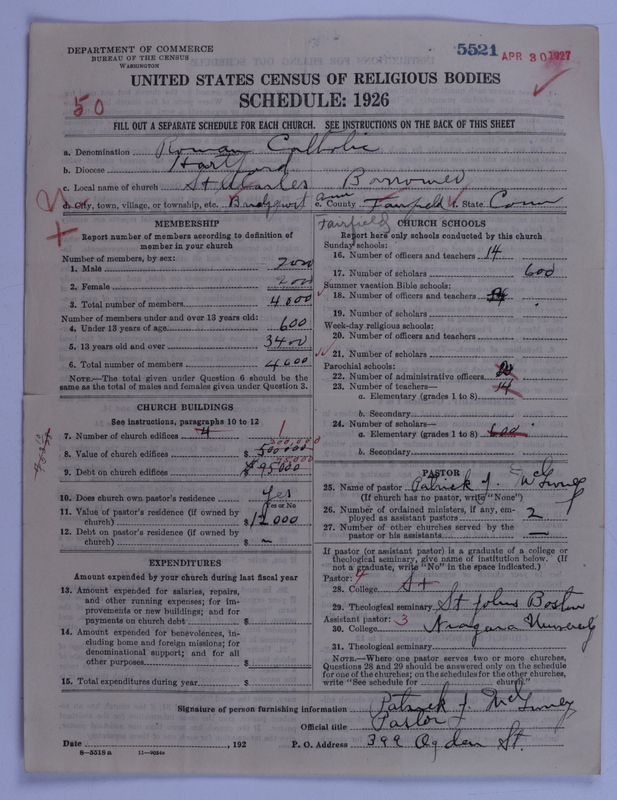 DEPARTMENT OF COMMERCE
BUREAU OF THE CENSUS
WASHINGTON
5521 APR 30 1927
50
UNITED STATES CENSUS OF RELIGIOUS BODIES
SCHEDULE: 1926
FILL OUT A SEPARATE SCHEDULE FOR EACH CHURCH. SEE INSTRUCTIONS ON THE BACK OF THIS SHEET
a. Denomination Roman Catholic
b. Diocese Hartford
c. Local name of church St Charles Borromeo
d. City, town, village, or township, etc. Bridgeport Conn e. County Fairfield f. State Conn
Fairfield
MEMBERSHIP
Report number of members according to definition of
member in your church
Number of members, by sex:
1. Male 2000
2. Female 2000
3. Total number of members 4000
Number of members under and over 13 years old:
4. Under 13 years of age 600
5. 13 years old and over 3400
6. Total number of members 4000
NOTE.—The total given under Question 6 should be the
same as the total of males and females given under Question 3.
CHURCH BUILDINGS
See instructions, paragraphs 10 to 12
7. Number of church edifices 4 1
500,000
8. Value of church edifices $ 500000
95000
9. Debt on church edifices $ 95000
10. Does church own pastor's residence yes
Yes or No
11. Value of pastor's residence (if owned by
church) $ 12000
12. Debt on pastor's residence (if owned by
church) $ —
EXPENDITURES
Amount expended by your church during last fiscal year
13. Amount expended for salaries, repairs,
and other running expenses; for im-
provements or new buildings; and for
payments on church debt $
14. Amount expended for benevolences, in-
cluding home and foreign missions; for
denominational support; and for all
other purposes $
15. Total expenditures during year $
CHURCH SCHOOLS
Report here only schools conducted by this church
Sunday schools:
16. Number of officers and teachers 14
17. Number of scholars 600
Summer vacation Bible schools:
18. Number of officers and teachers
19. Number of scholars
Week-day religious schools:
20. Number of officers and teachers
21. Number of scholars
Parochial schools:
22. Number of administrative officers
23. Number of teachers—
a. Elementary (grades 1 to 8) 14
b. Secondary
24. Number of scholars—
a. Elementary (grades 1 to 8) 600
b. Secondary
PASTOR
25. Name of pastor Patrick J. McGivney
(If church has no pastor, write "None")
26. Number of ordained ministers, if any, em-
ployed as assistant pastors 2
27. Number of other churches served by the
pastor or his assistants —
If pastor (or assistant pastor) is a graduate of a college or
theological seminary, give name of institution below. (If
not a graduate, write "No" in the space indicated.)
Pastor: 4
28. College St
29. Theological seminary St Johns Boston
Assistant pastor: 3
30. College Niagara University
31. Theological seminary
NOTE.—Where one pastor serves two or more churches,
Questions 28 and 29 should be answered only on the schedule
for one of the churches; on the schedules for the other churches,
write "See schedule for church."
Signature of person furnishing information Patrick J. McGivney
Official title Pastor
Date , 192 P. O. Address 399 Ogden St.
8—5518a 11—9034a